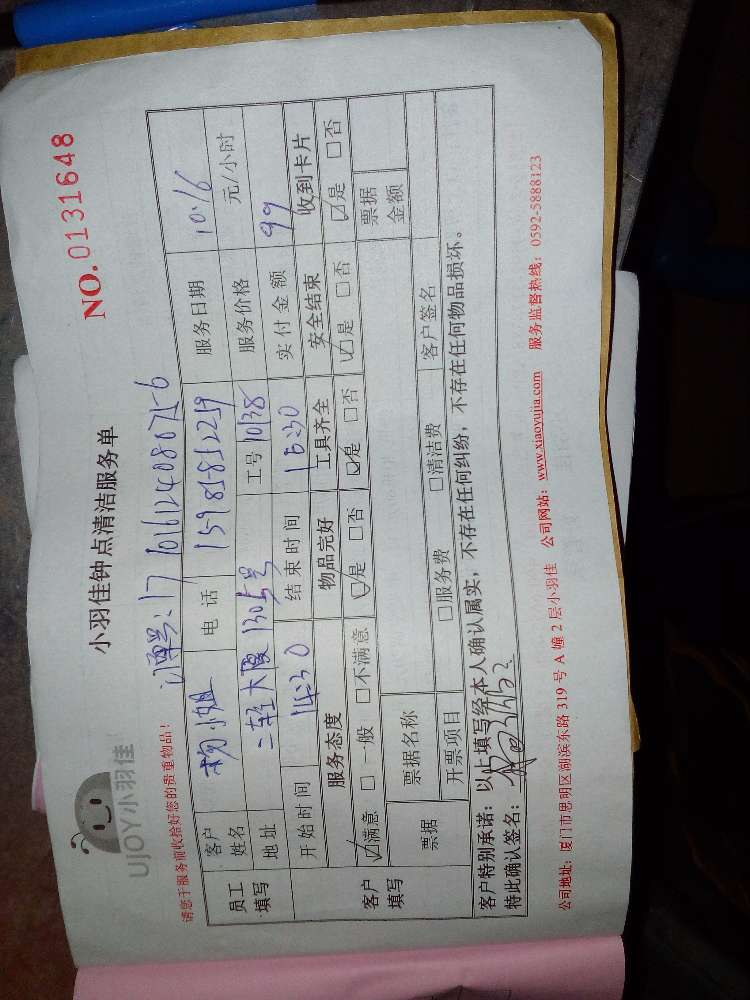 UJOY小羽佳
小羽佳钟点清洁服务单
NO. 0131648
请您于服务前收拾好您的贵重物品!
订单号:17101612408071-6
员工填写 客户姓名 杨小姐 电话 15985852259 服务日期 10.16
地址 二轻大厦1305号 工号 1038 服务价格 元/小时
开始时间 14:30 结束时间 15:30 实付金额 99
客户填写 服务态度 物品完好 工具齐全 安全结束 收到卡片
☑满意 □一般 □不满意 ☑是 □否 ☑是 □否 ☑是 □否 ☑是 □否
票据 票据名称 票据金额
开票项目 □服务费 □清洁费 客户签名
客户特别承诺:以上填写经本人确认属实,不存在任何纠纷,不存在任何物品损坏。
特此确认签名:
公司地址:厦门市思明区湖滨东路 319 号 A 幢 2 层小羽佳 公司网站:www.xiaoyujia.com 服务监督热线:0592-5888123